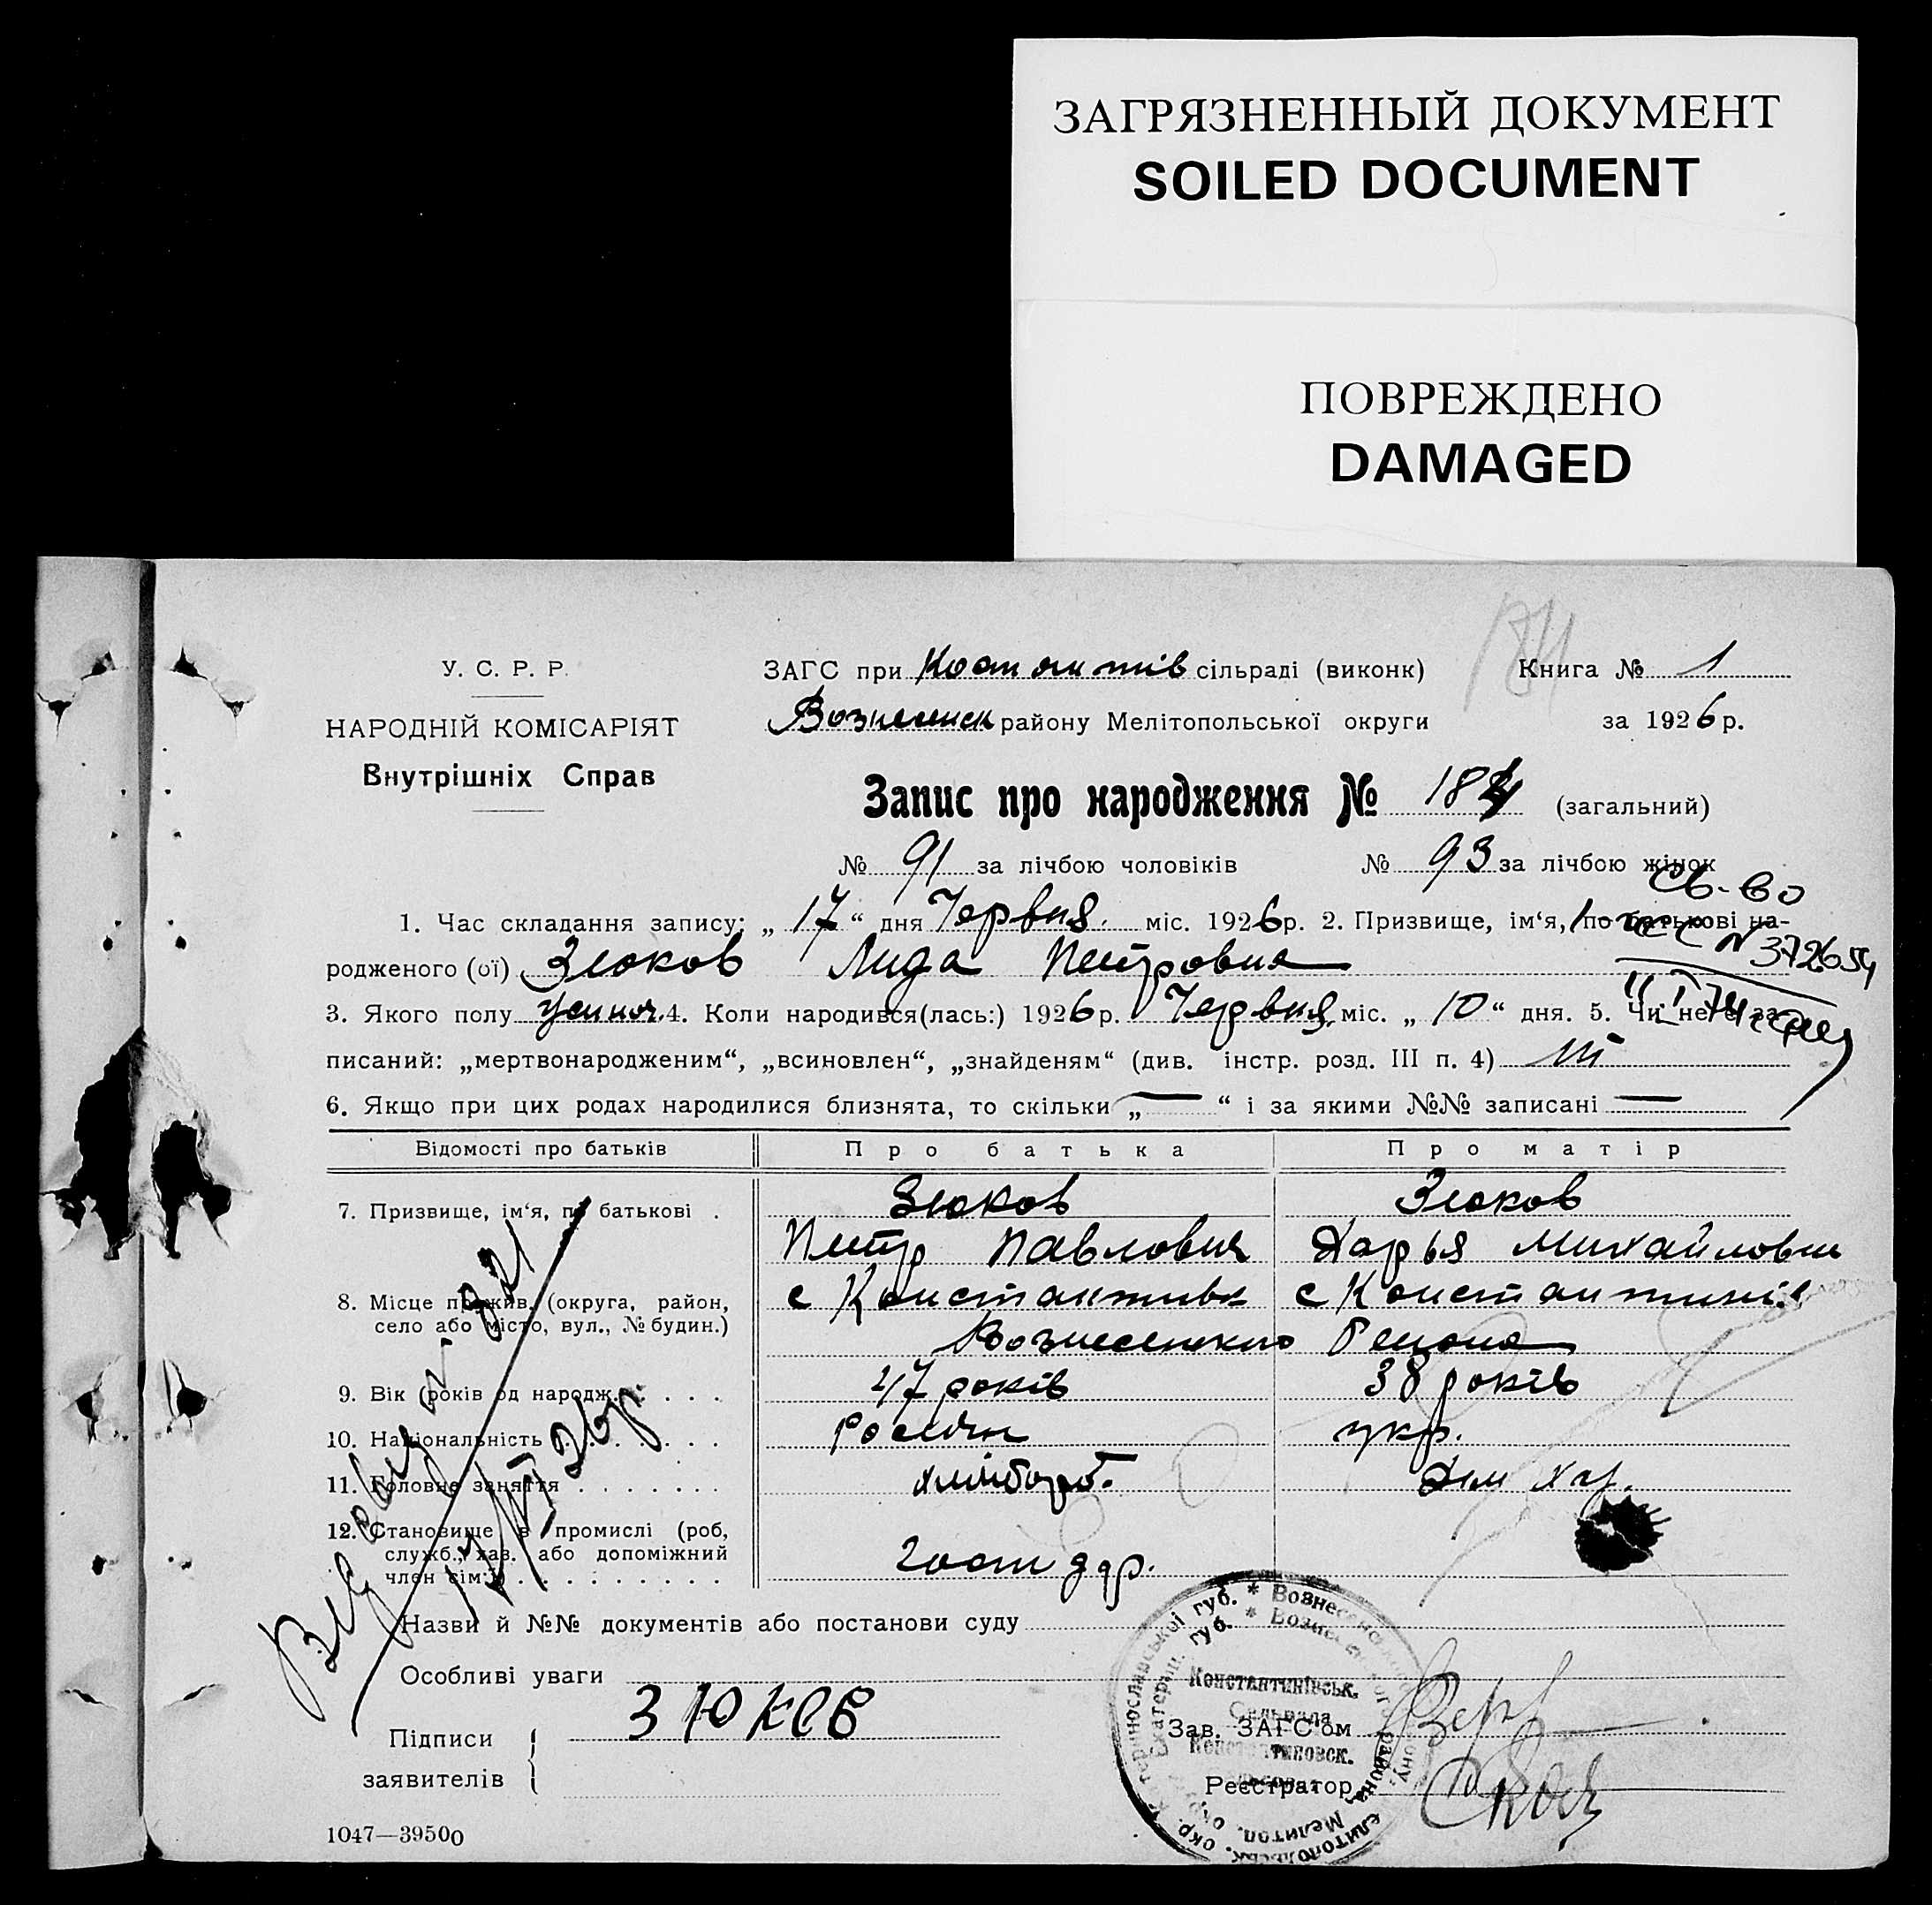 ЗАГРЯЗНЕННЫЙ ДОКУМЕНТ
SOILED DOCUMENT
ПОВРЕЖДЕНО
DAMAGED
184
У. С. Р. Р.
НАРОДНІЙ КОМІСАРІЯТ
Внутрішніх Справ
ЗАГС при Костянтів сільраді (виконк) Книга № 1
Вознесенск району Мелітопольської округи за 1926 р.
Запис про народження № 184 (загальний)
№ 91 за лічбою чоловіків № 93 за лічбою жінок
Св-во
1. Час складання запису: „ 17 “ дня Червня міс. 1926 р. 2. Призвище, ім‘я, по батькові на-
N 372654
родженого (ої) Зюков Лида Петровна
3. Якого полу жиноч. 4. Коли народився(лась:) 1926 р. Червня міс. „ 10 “ дня. 5. Чи не є за-
писаний: „мертвонародженим“, „всиновлен“, „знайденям“ (див. інстр. розд. III п. 4) ні
6. Якщо при цих родах народилися близнята, то скільки „ — “ і за якими №№ записані —
Відомості про батьків Про батька Про матір
7. Призвище, ім‘я, по батькові . Зюков Зюков
Петр Павлович Дарья Михайловн
8. Місце прожив. (округа, район, село або місто, вул., № будин.) с Константивк с Константинів
Вознесенкго Рейона
9. Вік (років од народж. 47 років 38 років
10. Національність Росіян укр.
11. Головне заняття хлібороб. Дом хаз.
12. Становище в промислі (роб, служб., хаз. або допоміжний член сім‘ї) госпдар.
Назви й №№ документів або постанови суду
Особливі уваги
Підписи заявителів { Зюков
Зав. ЗАГС‘ом
Реєстратор
Константинівськ.
Сельрада
1047—39500